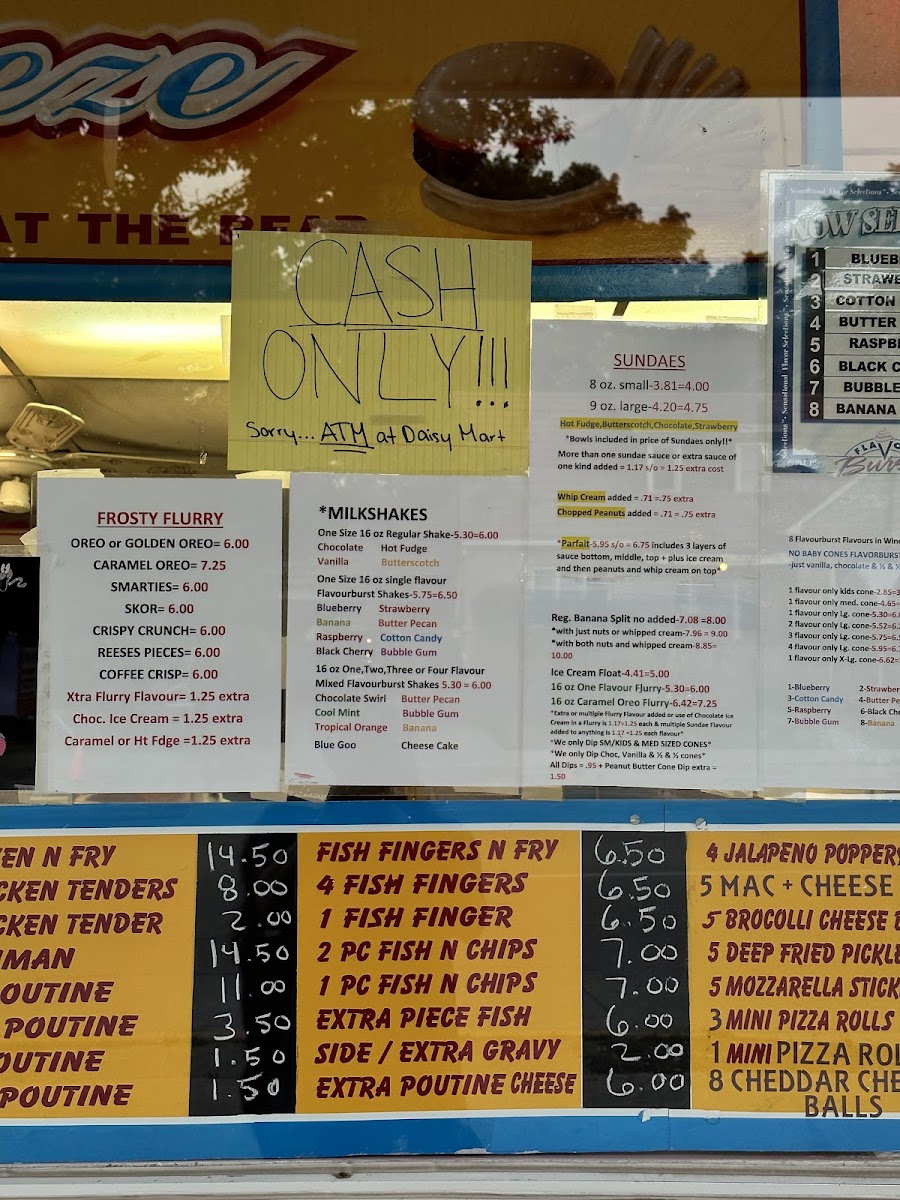 eze
AT THE REAR
CASH
ONLY!!!
Sorry... ATM at Daisy Mart
NOW SEL
1 BLUEB
2 STRAWE
3 COTTON
4 BUTTER
5 RASPB
6 BLACK C
7 BUBBLE
8 BANANA
FLAVO
Burs
FROSTY FLURRY
OREO or GOLDEN OREO= 6.00
CARAMEL OREO= 7.25
SMARTIES= 6.00
SKOR= 6.00
CRISPY CRUNCH= 6.00
REESES PIECES= 6.00
COFFEE CRISP= 6.00
Xtra Flurry Flavour= 1.25 extra
Choc. Ice Cream = 1.25 extra
Caramel or Ht Fdge =1.25 extra
*MILKSHAKES
One Size 16 oz Regular Shake-5.30=6.00
Chocolate Hot Fudge
Vanilla Butterscotch
One Size 16 oz single flavour
Flavourburst Shakes-5.75=6.50
Blueberry Strawberry
Banana Butter Pecan
Raspberry Cotton Candy
Black Cherry Bubble Gum
16 oz One,Two,Three or Four Flavour
Mixed Flavourburst Shakes 5.30 = 6.00
Chocolate Swirl Butter Pecan
Cool Mint Bubble Gum
Tropical Orange Banana
Blue Goo Cheese Cake
SUNDAES
8 oz. small-3.81=4.00
9 oz. large-4.20=4.75
Hot Fudge,Butterscotch,Chocolate,Strawberry
*Bowls included in price of Sundaes only!!*
More than one sundae sauce or extra sauce of
one kind added = 1.17 s/o = 1.25 extra cost
Whip Cream added = .71 =.75 extra
Chopped Peanuts added = .71 =.75 extra
*Parfait-5.95 s/o = 6.75 includes 3 layers of
sauce bottom, middle, top + plus ice cream
and then peanuts and whip cream on top*
Reg. Banana Split no added-7.08 =8.00
*with just nuts or whipped cream-7.96 = 9.00
*with both nuts and whipped cream-8.85=
10.00
Ice Cream Float-4.41=5.00
16 oz One Flavour Flurry-5.30=6.00
16 oz Caramel Oreo Flurry-6.42=7.25
*Extra or multiple Flurry Flavour added or use of Chocolate Ice
Cream in a Flurry is 1.17=1.25 each & multiple Sundae Flavour
added to anything is 1.17 =1.25 each flavour*
*We only Dip SM/KIDS & MED SIZED CONES*
*We only Dip Choc, Vanilla & ½ & ½ cones*
All Dips = .95 + Peanut Butter Cone Dip extra =
1.50
8 Flavourburst Flavours in
NO BABY CONES FLAVORBURST
-just vanilla, chocolate & ½ & ½
1 flavour only kids cone-2.85=3
1 flavour only med. cone-4.65=
1 flavour only Lg. cone-5.30=6.
2 flavour only Lg. cone-5.52=6.
3 flavour only Lg. cone-5.75=6.
4 flavour only Lg. cone-5.95=6.
1 flavour only X-Lg. cone-6.62=
1-Blueberry 2-Strawber
3-Cotton Candy 4-Butter Pe
5-Raspberry 6-Black Che
7-Bubble Gum 8-Banana
EN N FRY 14.50
CKEN TENDERS 8.00
CKEN TENDER 2.00
MAN 14.50
OUTINE 11.00
POUTINE 3.50
OUTINE 1.50
POUTINE 1.50
FISH FINGERS N FRY 6.50
4 FISH FINGERS 6.50
1 FISH FINGER 6.50
2 PC FISH N CHIPS 7.00
1 PC FISH N CHIPS 7.00
EXTRA PIECE FISH 6.00
SIDE / EXTRA GRAVY 2.00
EXTRA POUTINE CHEESE 6.00
4 JALAPENO POPPERS
5 MAC + CHEESE
5 BROCOLLI CHEESE B
5 DEEP FRIED PICKLE
5 MOZZARELLA STICK
3 MINI PIZZA ROLLS
1 MINI PIZZA ROL
8 CHEDDAR CHE
BALLS